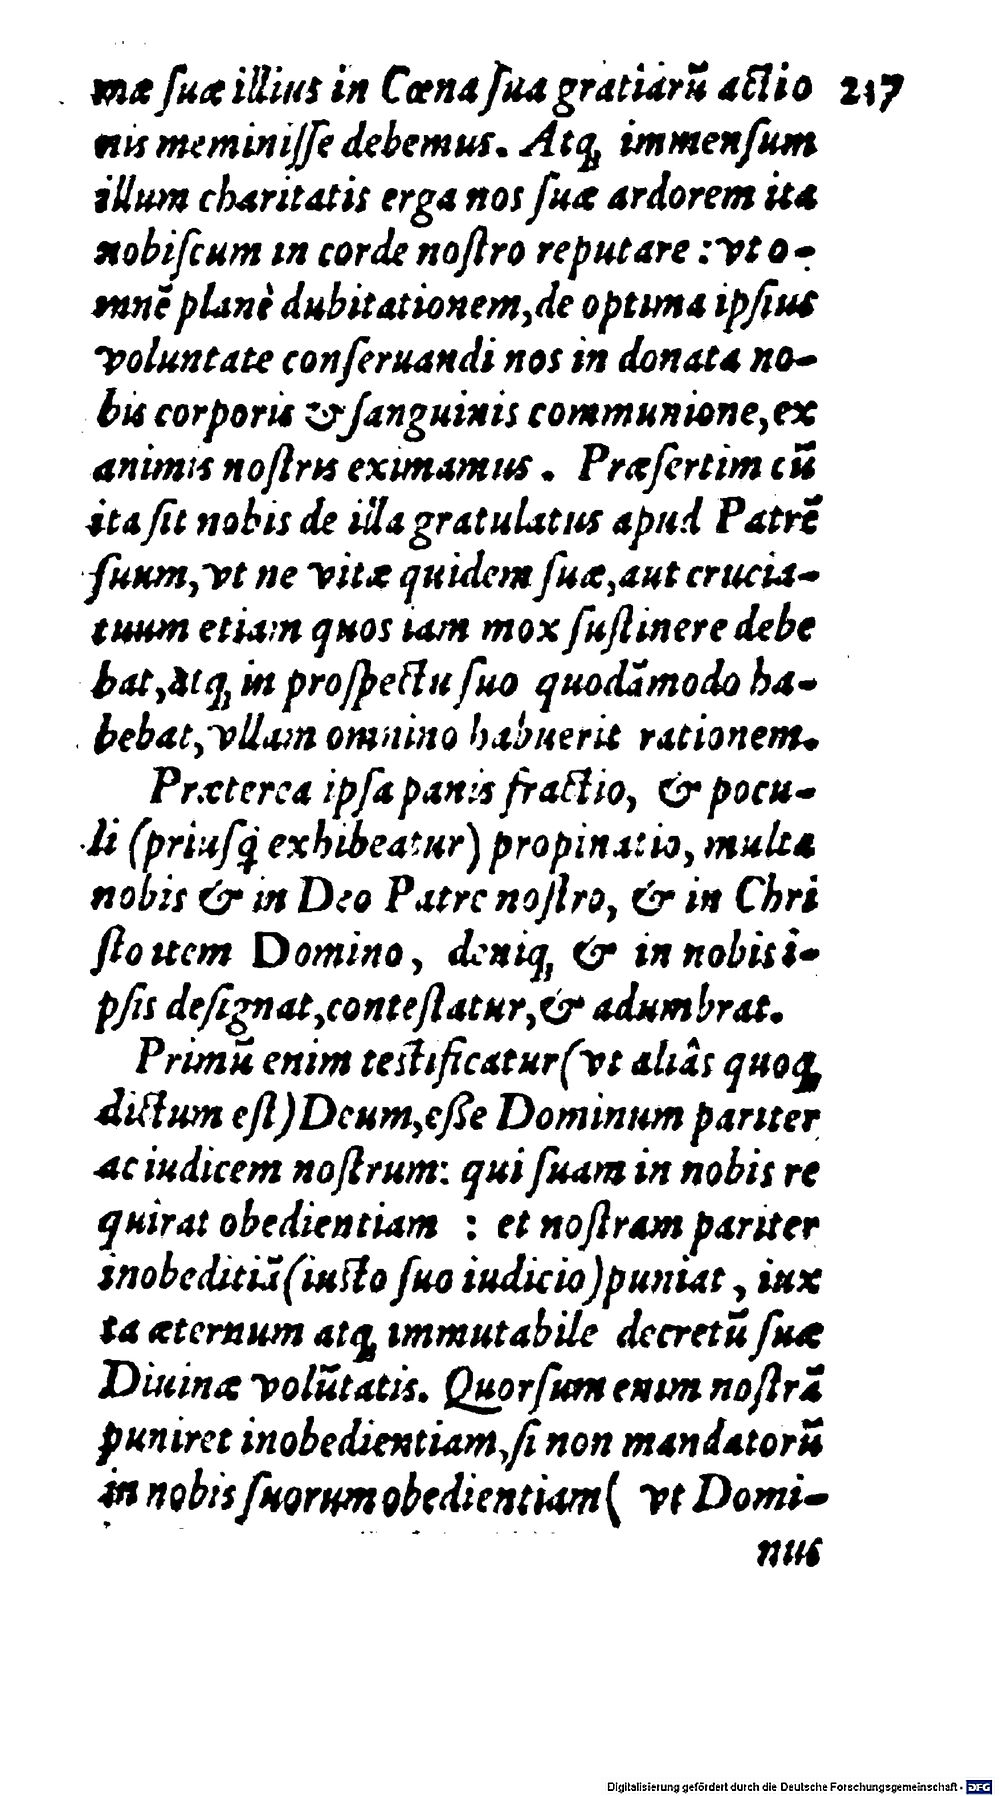 mæ ſuæ illius in Cœna ſua gratiarũ actio 217
nis meminiſſe debemus. Atq; immenſum
illum charitatis erga nos ſuæ ardorem ita
nobiſcum in corde noſtro reputare : vt o-
mnẽ planè dubitationem, de optima ipſius
voluntate conſeruandi nos in donata no-
bis corporis & ſanguinis communione, ex
animis noſtris eximamus. Præſertim cũ
ita ſit nobis de illa gratulatus apud Patrẽ
ſuum, vt ne vitæ quidem ſuæ, aut crucia-
tuum etiam quos iam mox ſuſtinere debe
bat, atq; in proſpectu ſuo quodãmodo ha-
bebat, vllam omnino habuerit rationem.
Præterea ipſa panis fractio, & pocu-
li (priuſq̃ exhibeatur) propinatio, multa
nobis & in Deo Patre noſtro, & in Chri
ſto item Domino, deniq; & in nobis i-
pſis deſignat, conteſtatur, & adumbrat.
Primũ enim teſtificatur (vt aliâs quoq;
dictum eſt) Deum, eſſe Dominum pariter
ac iudicem noſtrum: qui ſuam in nobis re
quirat obedientiam : et noſtram pariter
inobeditiã (iuſto ſuo iudicio) puniat, iux
ta æternum atq; immutabile decretũ ſuæ
Diuinæ volũtatis. Quorſum enim noſtrã
puniret inobedientiam, ſi non mandatorũ
in nobis ſuorum obedientiam ( vt Domi-
nus
Digitalisierung gefördert durch die Deutsche Forschungsgemeinschaft - DFG